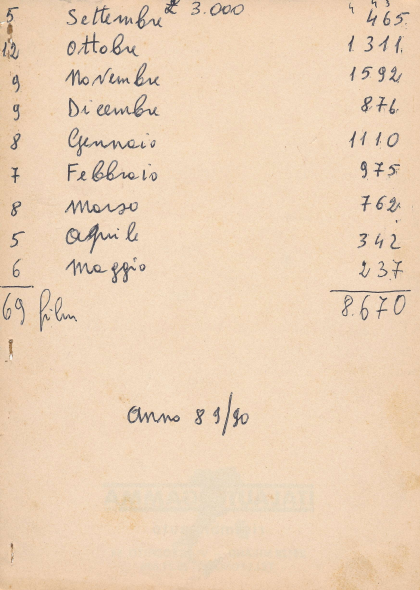 5 Settembre £ 3.000 465
12 Ottobre 1311
9 Novembre 1592
9 Dicembre 876
8 Gennaio 1110
7 Febbraio 975
8 Marzo 762
5 Aprile 342
6 Maggio 237
69 film 8.670
Anno 89/90